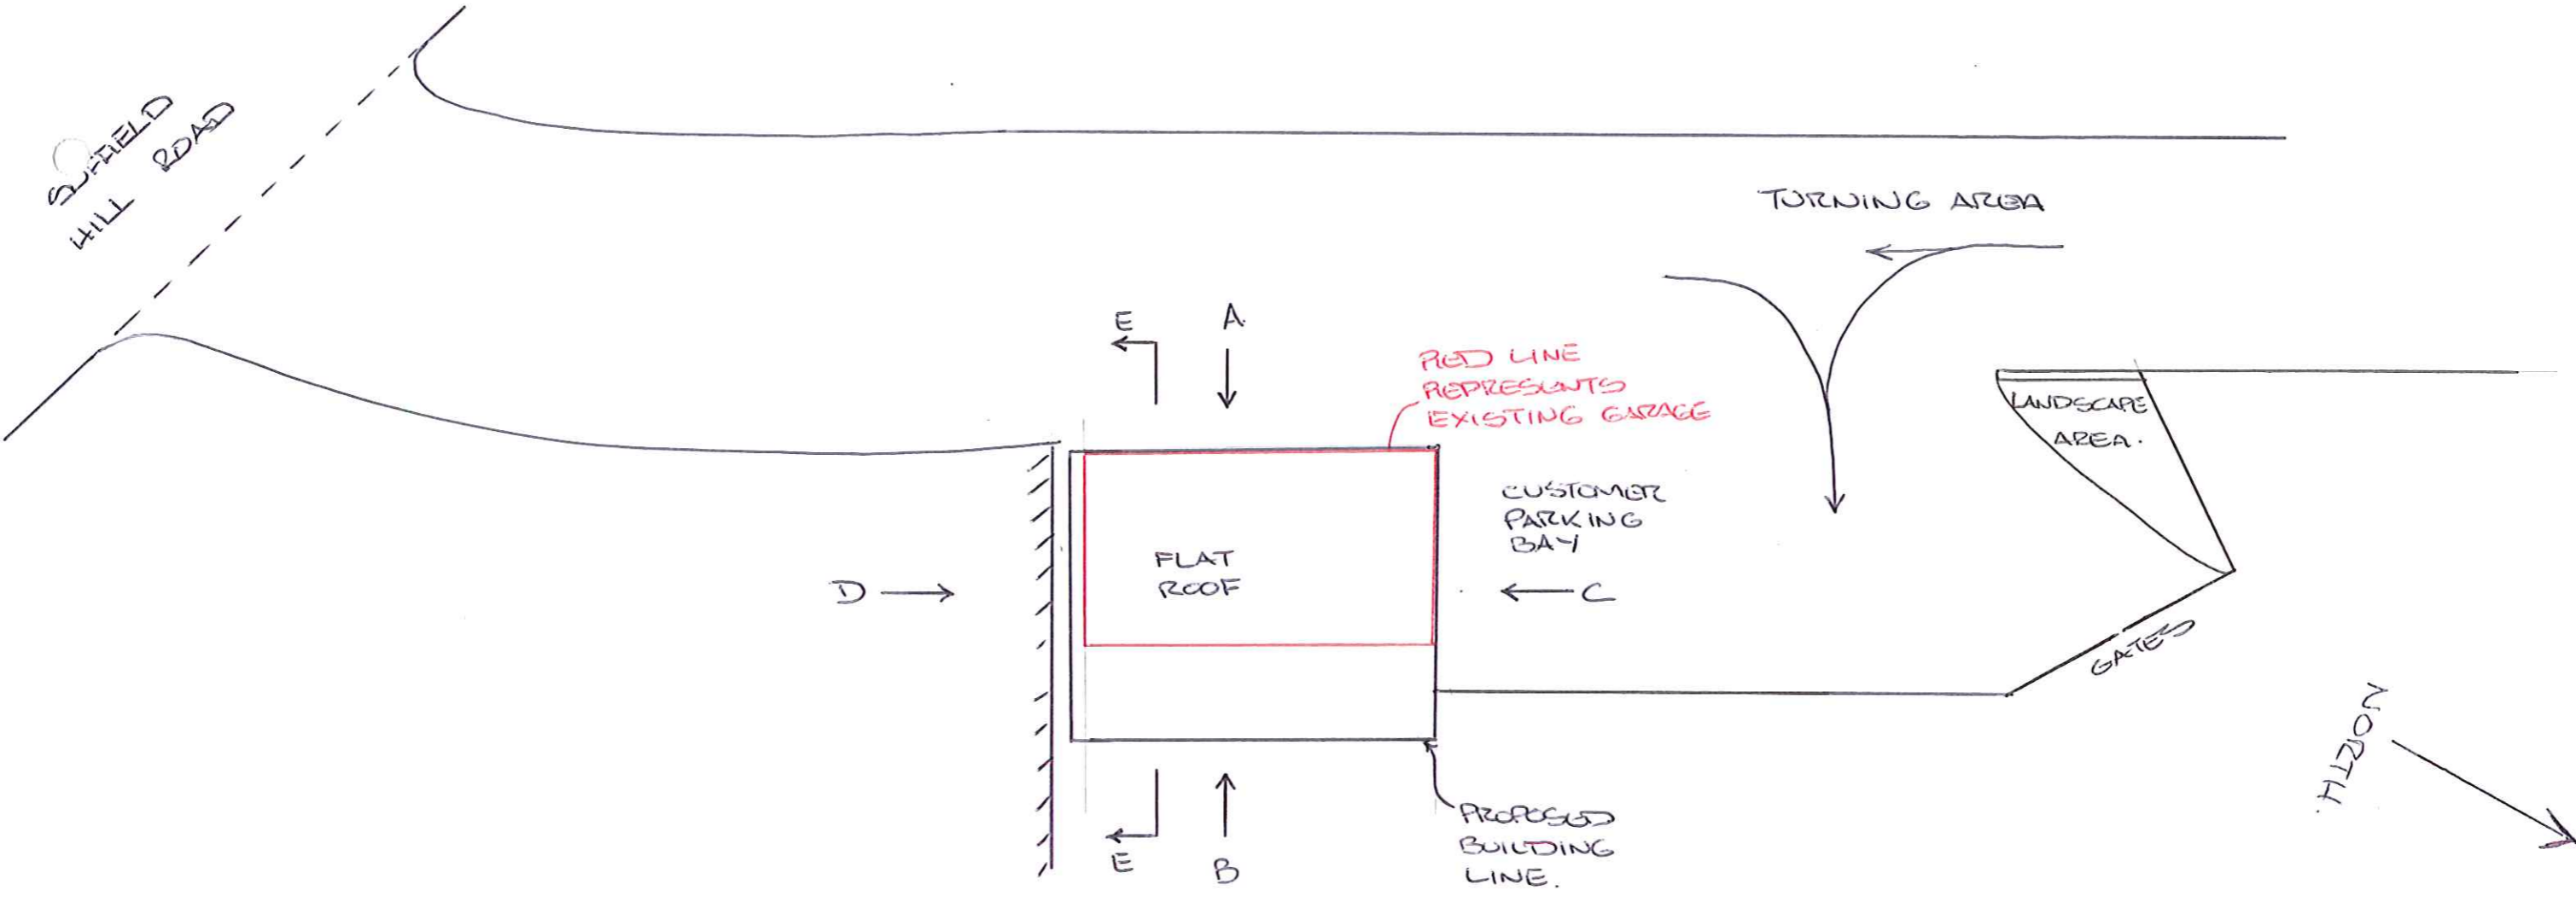 SUFFIELD
HILL ROAD
TURNING AREA
E
A
RED LINE
REPRESENTS
EXISTING GARAGE
LANDSCAPE
AREA.
CUSTOMER
PARKING
BAY
FLAT
ROOF
D
C
GATES
NORTH.
PROPOSED
BUILDING
LINE.
E
B